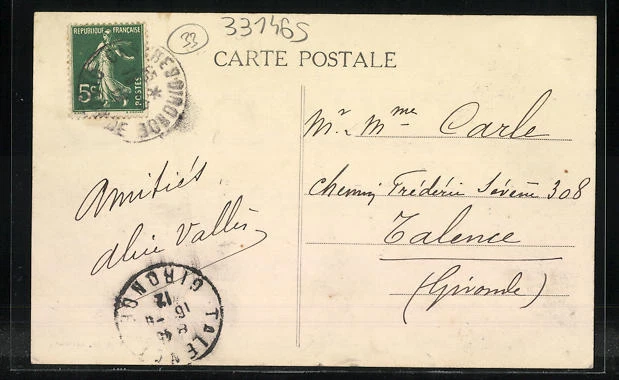 331465
33
CARTE POSTALE
REPUBLIQUE FRANÇAISE
5c
POSTES
GIRONDE
Mr & Mme Carle
chemin Frédéric Sévène 308
Talence
(Gironde)
Amitiés
Alice Vallès
TALENCE
GIRONDE